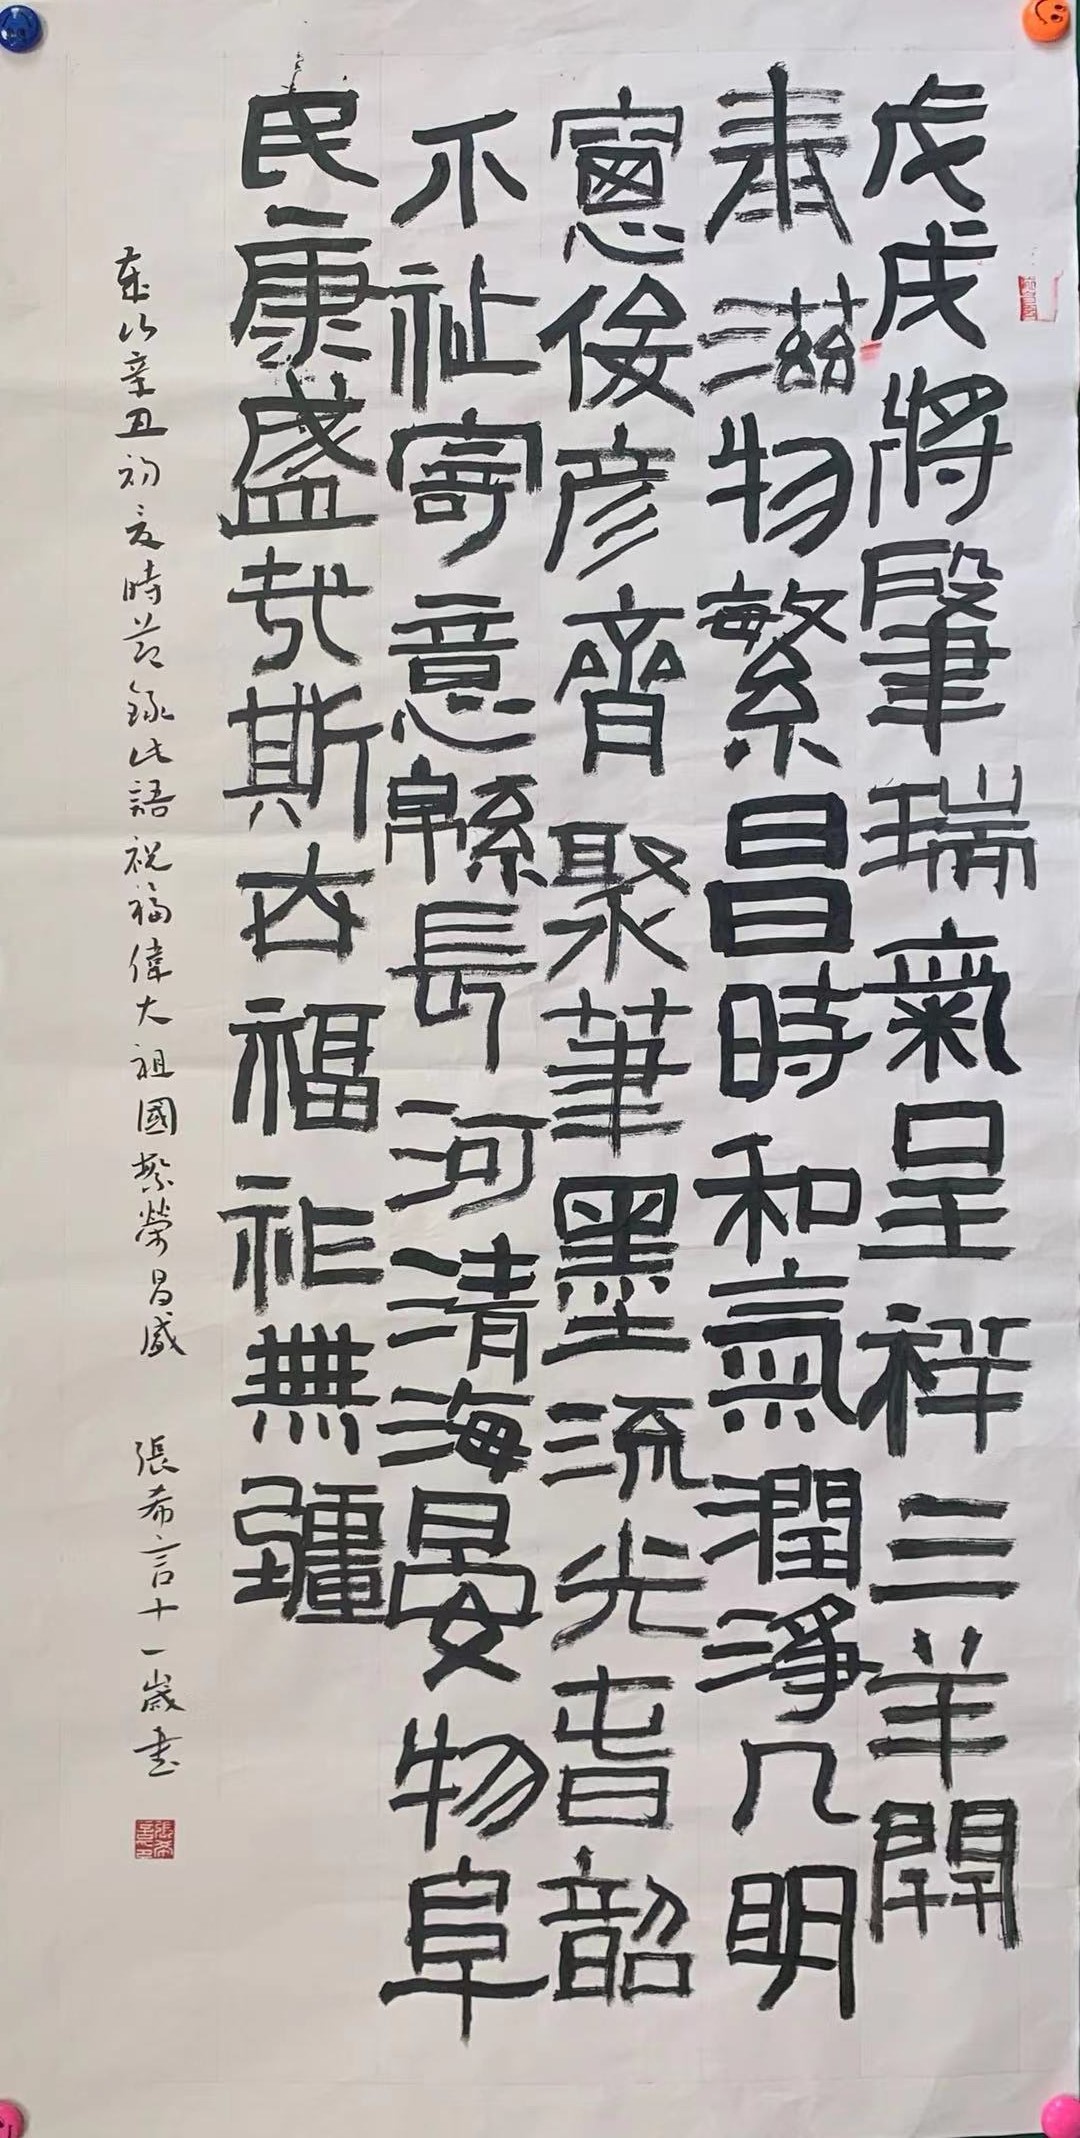 戊戌將肇瑞氣呈祥三羊開
泰滋物繁昌時和氣潤淨几明
窻俊彦齊聚筆墨流光耆韶
不祉寄意緜長河清海晏物阜
民康盛哉斯吉福祚無疆
歲次辛丑初夏時節錄此語祝福偉大祖國繁榮昌盛 張希言十一歲書